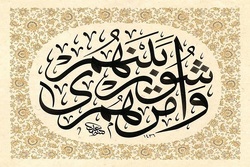 وأمرهم شورى بينهم
١٤٣٦